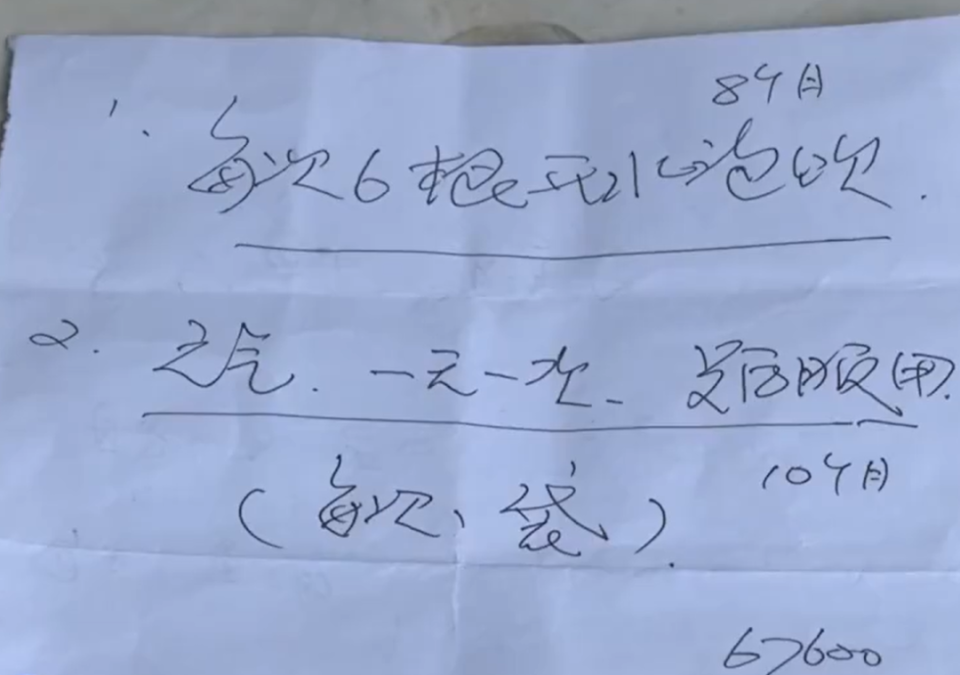 8个月
1. 每次6根开水泡饮.
2. 元气. 一天一次. 饭后服用.
10个月
(每次1袋).
67600